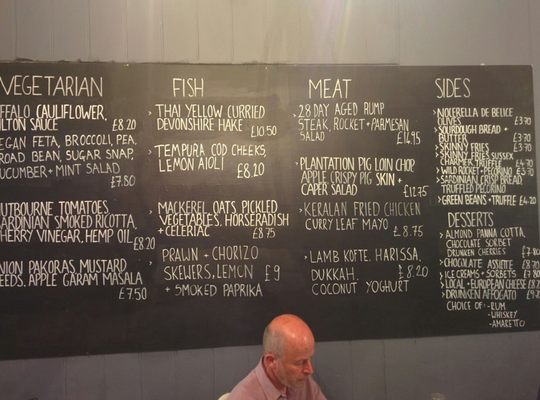 VEGETARIAN
FFALO CAULIFLOWER,
ILTON SAUCE £8.20
EGAN FETA, BROCCOLI, PEA,
ROAD BEAN, SUGAR SNAP,
UCUMBER + MINT SALAD
£7.80
UTBOURNE TOMATOES
ARDINIAN SMOKED RICOTTA,
HERRY VINEGAR, HEMP OIL
£8.20
NION PAKORAS, MUSTARD
EEDS, APPLE GARAM MASALA
£7.50
FISH
THAI YELLOW CURRIED
DEVONSHIRE HAKE
£10.50
TEMPURA COD CHEEKS,
LEMON AIOLI £8.20
MACKEREL OATS PICKLED
VEGETABLES, HORSERADISH
+ CELERIAC £8.75
PRAWN + CHORIZO
SKEWERS, LEMON £9
+ SMOKED PAPRIKA
MEAT
28 DAY AGED RUMP
STEAK, ROCKET + PARMESAN
SALAD £14.95
PLANTATION PIG LOIN CHOP
APPLE CRISPY PIG SKIN +
CAPER SALAD £12.75
KERALAN FRIED CHICKEN
CURRY LEAF MAYO £8.75
LAMB KOFTE, HARISSA,
DUKKAH. £8.20
COCONUT YOGHURT
SIDES
NOCERELLA DE BELICE
OLIVES £3.70
SOURDOUGH BREAD +
BUTTER £3.70
SKINNY FRIES £3.70
SKINNY FRIES SUSSEX
CHARMER, TRUFFLE £4.70
WILD ROCKET + PECORINO £3.70
SARDINIAN CRISP BREAD,
TRUFFLED PECORINO
GREEN BEANS + TRUFFLE £4.20
DESSERTS
ALMOND PANNA COTTA,
CHOCOLATE SORBET
DRUNKEN CHERRIES £7.80
CHOCOLATE ASSIETTE £8.70
ICE CREAMS + SORBETS £7.80
LOCAL + EUROPEAN CHEESE £8.20
DRUNKEN AFFOGATO £9.20
CHOICE OF :- RUM
- WHISKEY
- AMARETTO